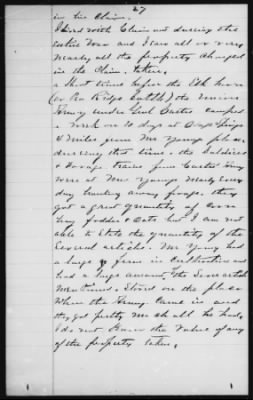 27
in his Claim.
I lived with Claimant during the
entire War and I saw all or very
nearly all the property charged
in the Claim, taken,
a short time before the Elk horn
(or Pea Ridge battle) the Union
Army under Genl Curtis camped
a week or 10 days at Camp Springs
4 miles from Mr Youngs place,
during that time the Soldiers
& forage trains from Curtis Army
were at Mr Youngs nearly every
day hauling away forage. they
got a great quantity of Corn
Hay fodder & Oats but I am not
able to State the quantity of the
several articles. Mr Young had
a large farm in cultivation and
had a large amount of the several articles
mentioned. stored on the place
when the Army came in and
they got pretty much all he had,
I do not know the value of any
of the property taken.